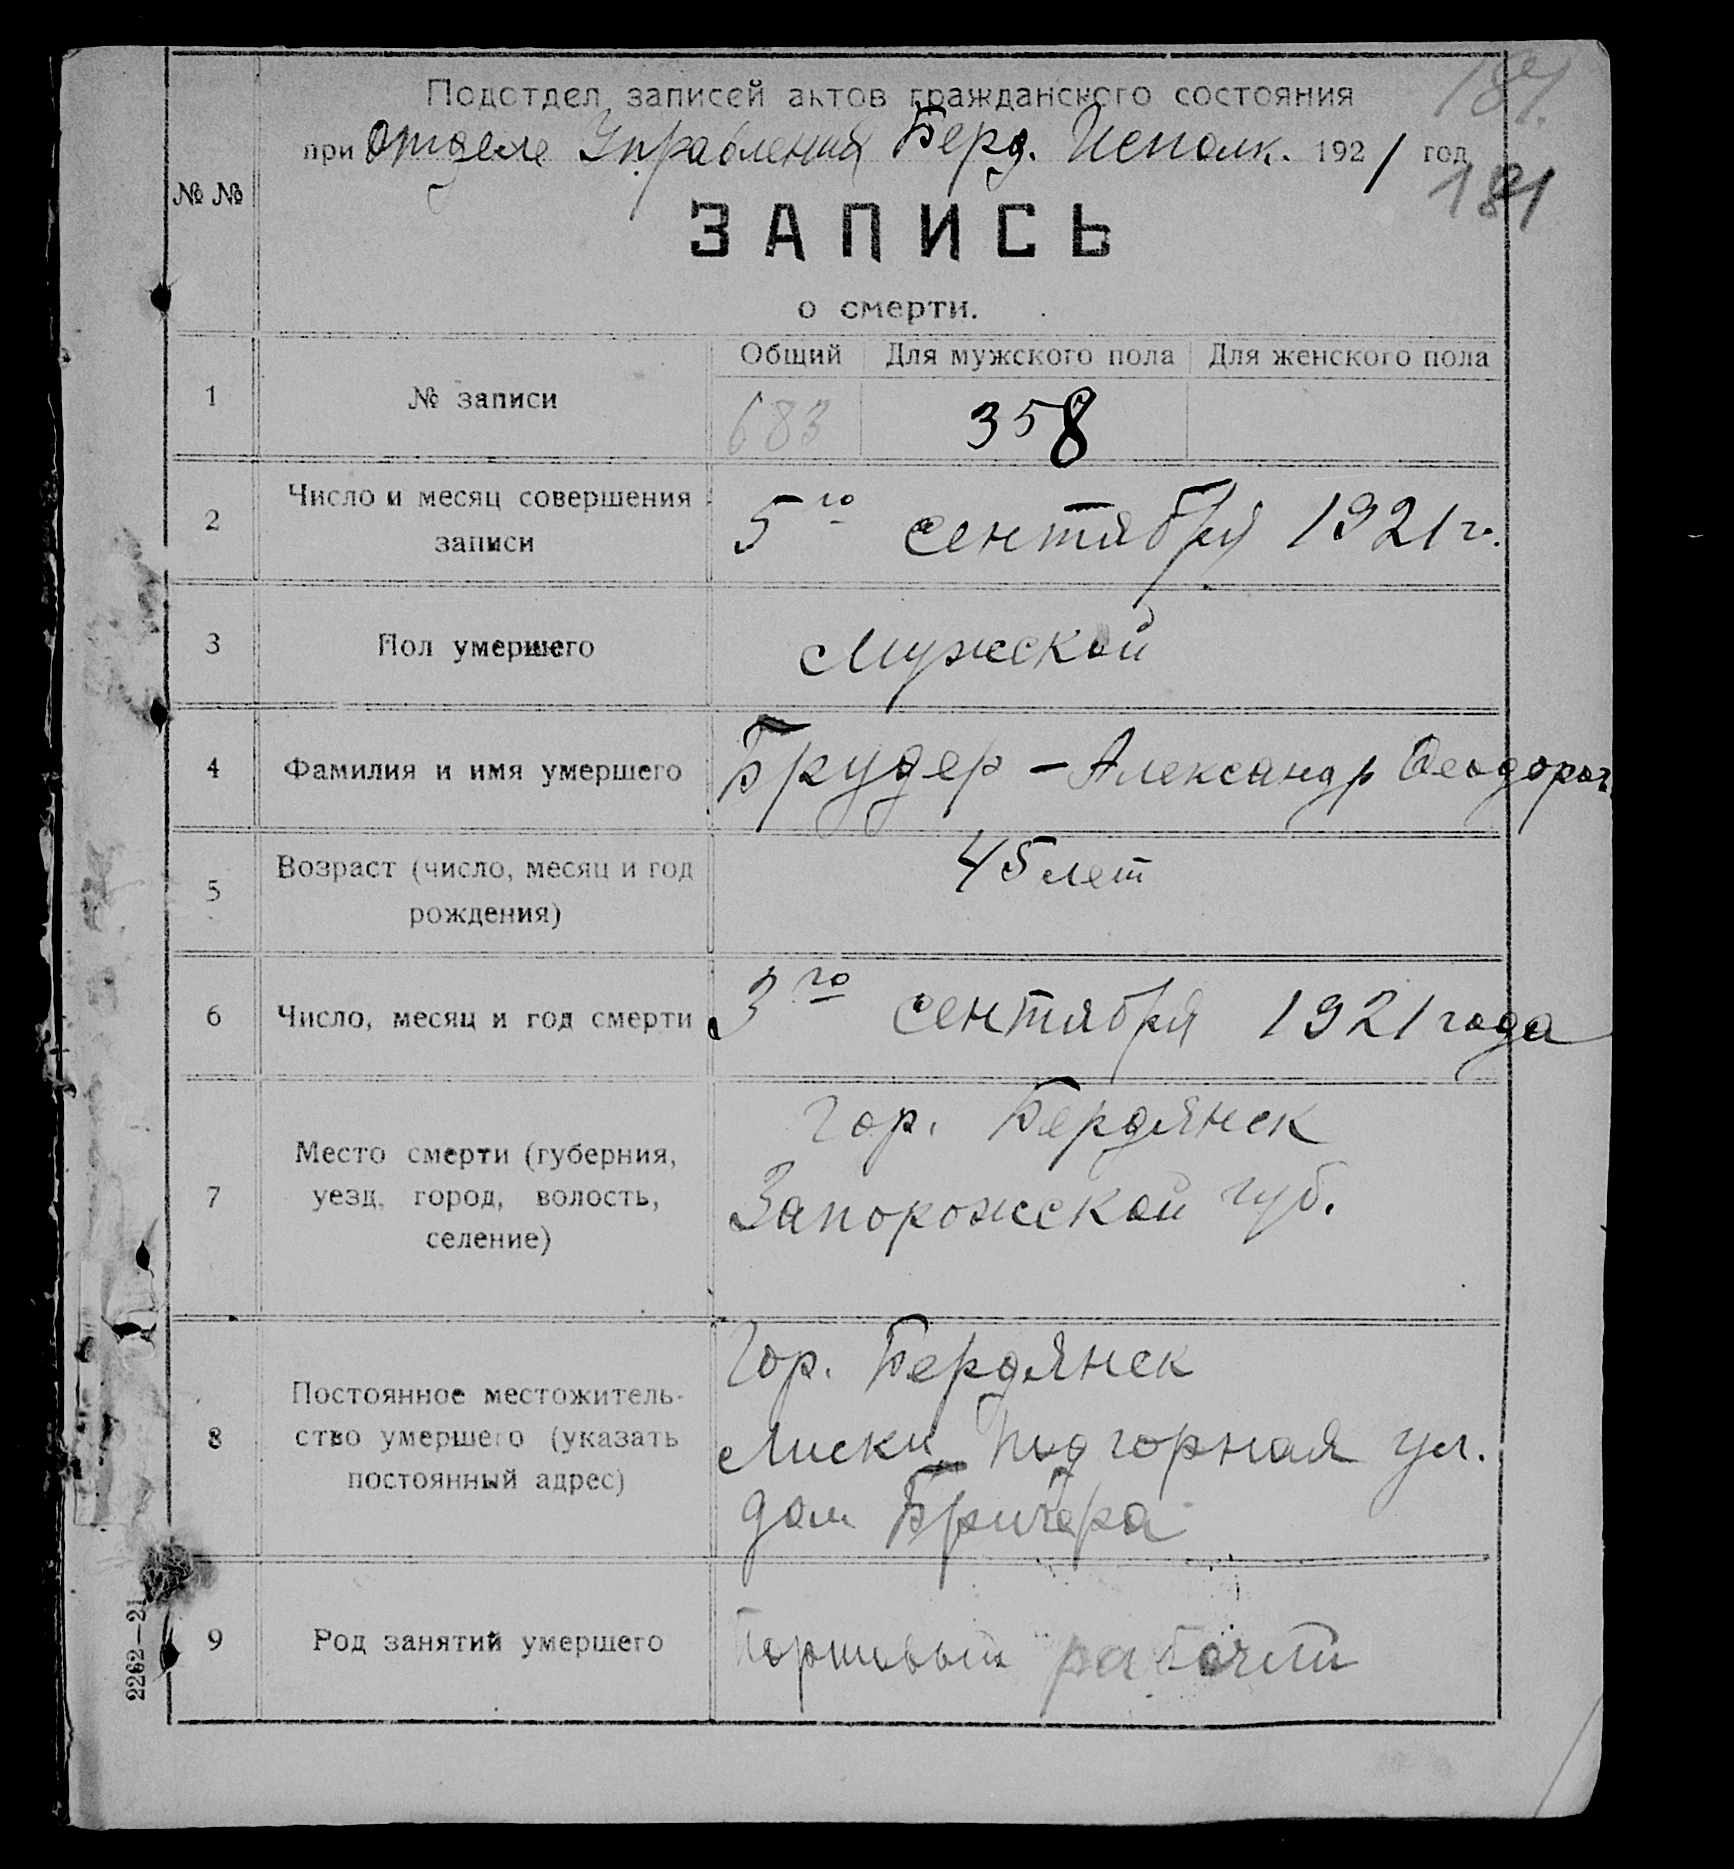 181.
Подотдел записей актов гражданского состояния
при Отделе Управления Берд. Исполк. 1921 год
181
№ №
ЗАПИСЬ
о смерти.
Общий Для мужского пола Для женского пола
1 № записи 683 358
2 Число и месяц совершения
записи
5го сентября 1921 г.
3 Пол умершего Мужской
4 Фамилия и имя умершего Брудер – Александр Феодоров
5 Возраст (число, месяц и год
рождения)
45 лет
6 Число, месяц и год смерти 3го сентября 1921 года
7 Место смерти (губерния,
уезд, город, волость,
селение)
гор. Бердянск
Запорожской губ.
8 Постоянное местожитель-
ство умершего (указать
постоянный адрес)
Гор. Бердянск
Лиски Подгорная ул.
дом
9 Род занятий умершего рабочий
2262—21